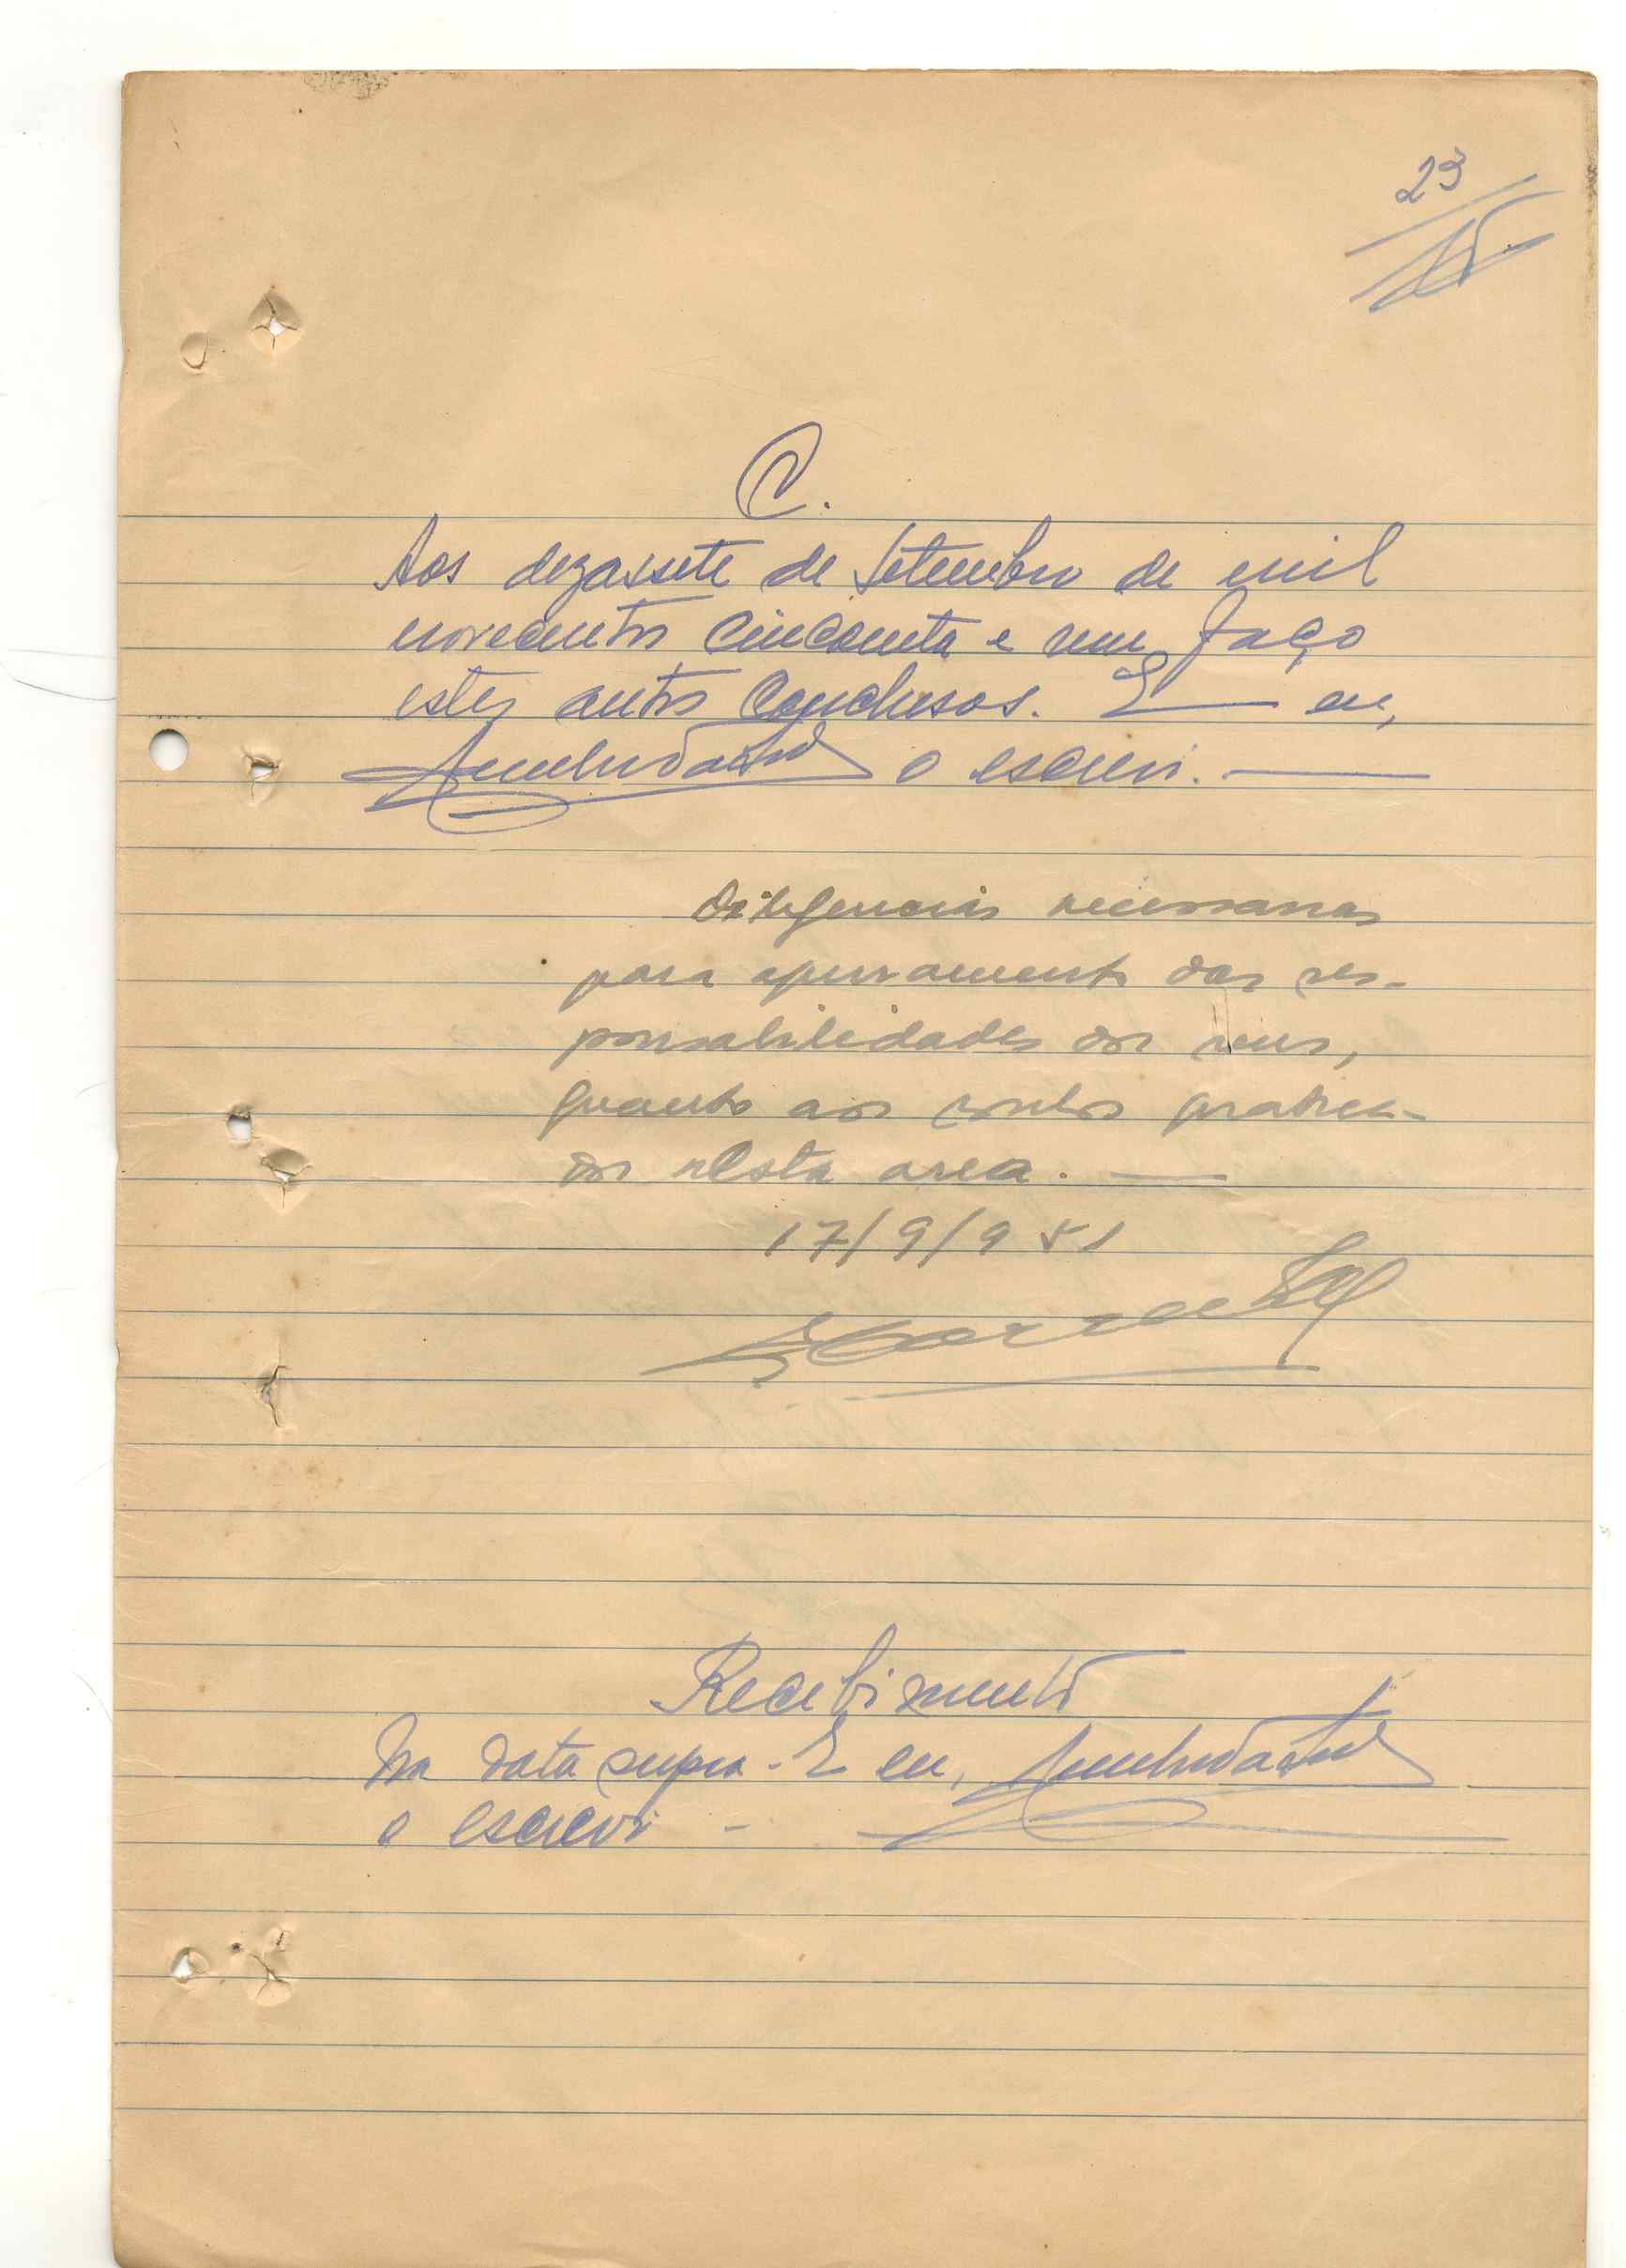 23
C.
Aos dezassete de Setembro de mil
novecentos cincoenta e um, faço
estes autos conclusos. E eu,
o escrevi.
Diligencias necessarias
para apuramento das res-
ponsabilidades dos reus,
quanto aos roubos pratica-
dos nesta area.
17/9/951
Recebimento
Na data supra - E eu,
o escrevi -